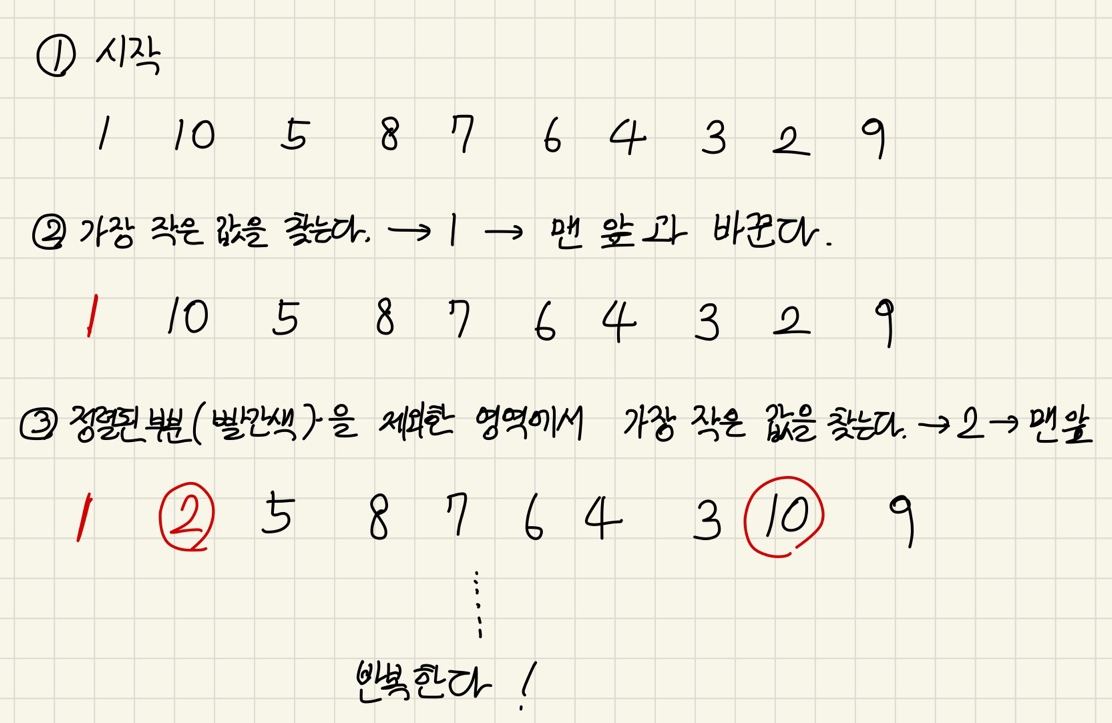 ① 시작
1 10 5 8 7 6 4 3 2 9
② 가장 작은 값을 찾는다. → 1 → 맨 앞과 바꾼다.
1 10 5 8 7 6 4 3 2 9
③ 정렬된 부분(빨간색)을 제외한 영역에서 가장 작은 값을 찾는다. → 2 → 맨앞
1 2 5 8 7 6 4 3 10 9
반복한다!